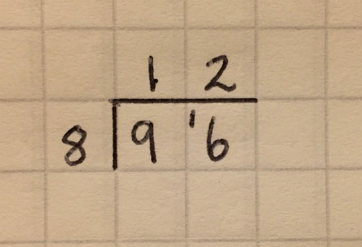 1 2
8 9 ¹6